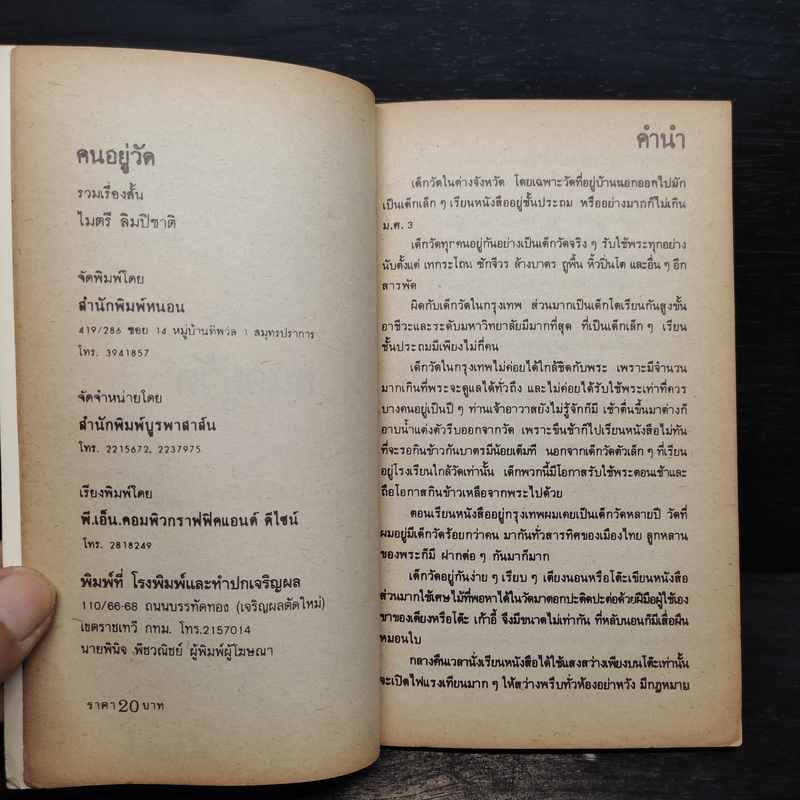 คนอยู่วัด
รวมเรื่องสั้น
ไมตรี ลิมปิชาติ
จัดพิมพ์โดย
สำนักพิมพ์หนอน
419/286 ซอย 14 หมู่บ้านทิพวัล 1 สมุทรปราการ
โทร. 3941857
จัดจำหน่ายโดย
สำนักพิมพ์บูรพาสาส์น
โทร. 2215672, 2237975
เรียงพิมพ์โดย
พี.เอ็น.คอมพิวกราฟฟิคแอนด์ ดีไซน์
โทร. 2818249
พิมพ์ที่ โรงพิมพ์และทำปกเจริญผล
110/66-68 ถนนบรรทัดทอง (เจริญผลตัดใหม่)
เขตราชเทวี กทม. โทร.2157014
นายพินิจ พืชวณิชย์ ผู้พิมพ์ผู้โฆษณา
ราคา 20 บาท
คำนำ
เด็กวัดในต่างจังหวัด โดยเฉพาะวัดที่อยู่บ้านนอกออกไปมัก
เป็นเด็กเล็ก ๆ เรียนหนังสืออยู่ชั้นประถม หรืออย่างมากก็ไม่เกิน
ม.ศ. 3
เด็กวัดทุกคนอยู่กันอย่างเป็นเด็กวัดจริง ๆ รับใช้พระทุกอย่าง
นับตั้งแต่ เทกระโถน ซักจีวร ล้างบาตร ถูพื้น หิ้วปิ่นโต และอื่น ๆ อีก
สารพัด
ผิดกับเด็กวัดในกรุงเทพ ส่วนมากเป็นเด็กโตเรียนกันสูงขั้น
อาชีวะและระดับมหาวิทยาลัยมีมากที่สุด ที่เป็นเด็กเล็ก ๆ เรียน
ชั้นประถมมีเพียงไม่กี่คน
เด็กวัดในกรุงเทพไม่ค่อยได้ใกล้ชิดกับพระ เพราะมีจำนวน
มากเกินที่พระจะดูแลได้ทั่วถึง และไม่ค่อยได้รับใช้พระเท่าที่ควร
บางคนอยู่เป็นปี ๆ ท่านเจ้าอาวาสยังไม่รู้จักก็มี เช้าตื่นขึ้นมาต่างก็
อาบน้ำแต่งตัวรีบออกจากวัด เพราะขืนช้าก็ไปเรียนหนังสือไม่ทัน
ที่จะรอกินข้าวก้นบาตรมีน้อยเต็มที นอกจากเด็กวัดตัวเล็ก ๆ ที่เรียน
อยู่โรงเรียนใกล้วัดเท่านั้น เด็กพวกนี้มีโอกาสรับใช้พระตอนเช้าและ
ถือโอกาสกินข้าวเหลือจากพระไปด้วย
ตอนเรียนหนังสืออยู่กรุงเทพผมเคยเป็นเด็กวัดหลายปี วัดที่
ผมอยู่มีเด็กวัดร้อยกว่าคน มากันทั่วสารทิศของเมืองไทย ลูกหลาน
ของพระก็มี ฝากต่อ ๆ กันมาก็มาก
เด็กวัดอยู่กันง่าย ๆ เรียบ ๆ เตียงนอนหรือโต๊ะเขียนหนังสือ
ส่วนมากใช้เศษไม้ที่พอหาได้ในวัดมาตอกปะติดปะต่อด้วยฝีมือผู้ใช้เอง
ขาของเตียงหรือโต๊ะ เก้าอี้ จึงมีขนาดไม่เท่ากัน ที่หลับนอนก็มีเสื่อผืน
หมอนใบ
กลางคืนเวลานั่งเรียนหนังสือได้ใช้แสงสว่างเพียงบนโต๊ะเท่านั้น
จะเปิดไฟแรงเทียนมาก ๆ ให้สว่างพรึบทั่วห้องอย่าหวัง มีกฎหมาย